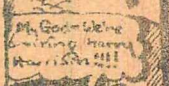 My God! We're
killing Harry
Harrison!!!!